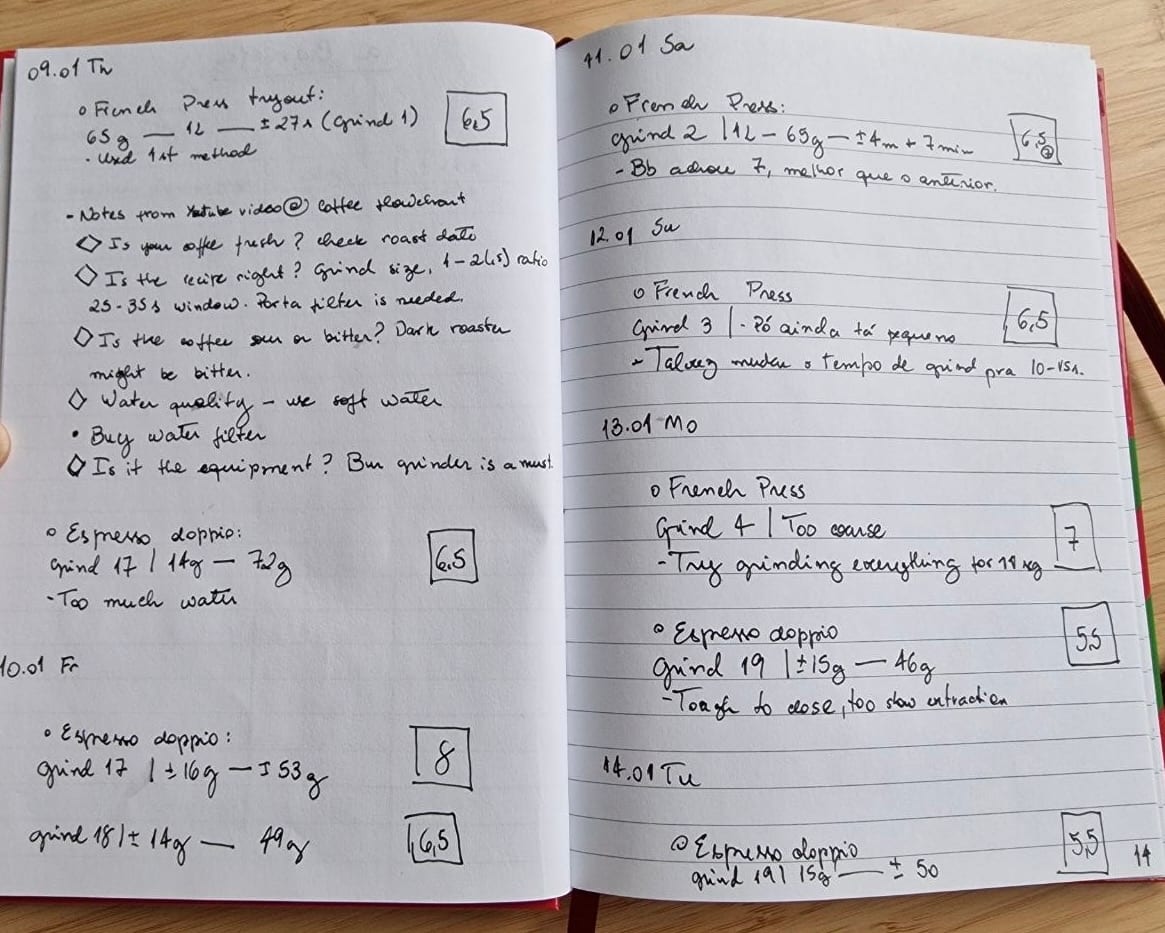 09.01 Th
o French Press tryout:
65g — 1L — ±27s (Grind 1)
6,5
• Used 1st method
- Notes from Youtube video @ Coffee
◇ Is your coffee fresh? check roast date
◇ Is the recipe right? Grind size, 1-2(,5) ratio
25-35s window. Porta filter is needed.
◇ Is the coffee sour or bitter? Dark roaster
might be bitter.
◇ Water quality - use soft water
• Buy water filter
◇ Is it the equipment? Burr grinder is a must.
o Espresso doppio:
grind 17 | 14g — 72g
6,5
- Too much water
10.01 Fr
• Espresso doppio:
grind 17 | ±16g — ±53g
8
grind 18 | ± 14g — 49g
6,5
11.01 Sa
o French Press:
grind 2 | 1L - 65g - ±4m + 7min
6,5
7
- Bb achou 7, melhor que o anterior.
12.01 Su
o French Press
Grind 3 | - Pó ainda tá pequeno
6,5
- Talvez mudar o tempo de grind pra 10-15s.
13.01 Mo
o French Press
Grind 4 | Too coarse
7
- Try grinding everything for 18
o Espresso doppio
grind 19 | ±15g — 46g
5,5
- Tough to close, too slow extraction
14.01 Tu
o Espresso doppio
grind 19 | 15g — ± 50
5,5
14